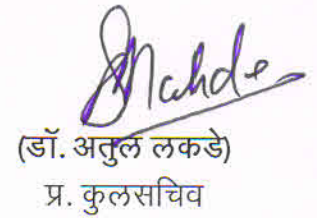 (डॉ. अतुल लकडे)
प्र. कुलसचिव